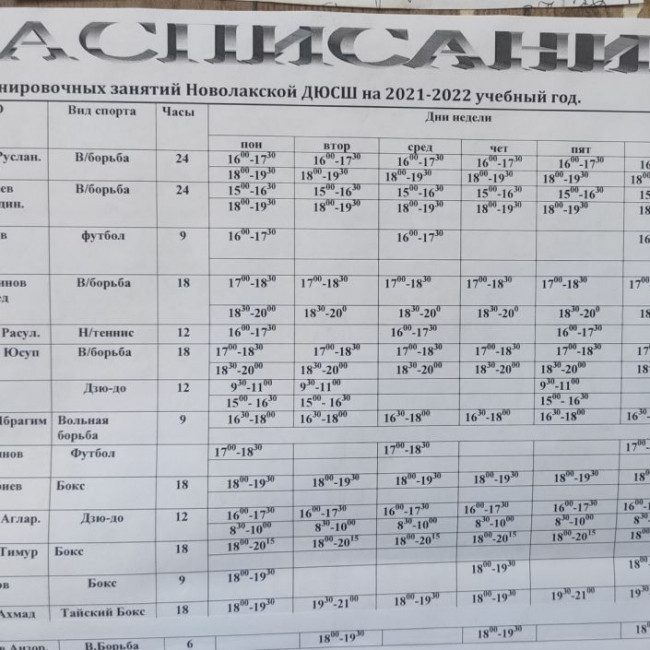 АСПИСАНИ
нировочных занятий Новолакской ДЮСШ на 2021-2022 учебный год.
Вид спорта Часы Дни недели
пон втор сред чет пят
Руслан. В/борьба 24 16⁰⁰-17³⁰ 16⁰⁰-17³⁰ 16⁰⁰-17³⁰ 16⁰⁰-17³⁰ 16⁰⁰-17³⁰
18⁰⁰-19³⁰ 18⁰⁰-19³⁰ 18⁰⁰-19³⁰ 18⁰⁰-19³⁰ 18⁰⁰-19³⁰ 18⁰⁰
ев В/борьба 24 15⁰⁰-16³⁰ 15⁰⁰-16³⁰ 15⁰⁰-16³⁰ 15⁰⁰-16³⁰ 15⁰⁰-16³⁰ 15
дин. 18⁰⁰-19³⁰ 18⁰⁰-19³⁰ 18⁰⁰-19³⁰ 18⁰⁰-19³⁰ 18⁰⁰-19³⁰ 18
в футбол 9 16⁰⁰-17³⁰ 16⁰⁰-17³⁰ 16
инов В/борьба 18 17⁰⁰-18³⁰ 17⁰⁰-18³⁰ 17⁰⁰-18³⁰ 17⁰⁰-18³⁰ 17⁰⁰-18³⁰ 17⁰⁰
ед 18³⁰-20⁰⁰ 18³⁰-20⁰ 18³⁰-20⁰ 18³⁰-20⁰ 18³⁰-20⁰ 18
Расул. Н/теннис 12 16⁰⁰-17³⁰ 16⁰⁰-17³⁰ 16⁰⁰-17³⁰
Юсуп В/борьба 18 17⁰⁰-18³⁰ 17⁰⁰-18³⁰ 17⁰⁰-18³⁰ 17⁰⁰-18³⁰ 17⁰⁰-18³⁰ 17
18³⁰-20⁰⁰ 18³⁰-20⁰⁰ 18³⁰-20⁰⁰ 18³⁰-20⁰⁰ 18³⁰-20⁰⁰ 18
Дзю-до 12 9³⁰-11⁰⁰ 9³⁰-11⁰⁰ 9³⁰-11⁰⁰
15⁰⁰- 16³⁰ 15⁰⁰- 16³⁰ 15⁰⁰- 16³⁰
Ибрагим Вольная 9 16³⁰-18⁰⁰ 16³⁰-18⁰⁰ 16³⁰-18⁰⁰ 16³⁰-18⁰⁰ 16³⁰-18⁰⁰ 16³⁰
борьба
инов Футбол 17⁰⁰-18³⁰ 17⁰⁰-18³⁰ 17⁰⁰
Бокс 18 18⁰⁰-19³⁰ 18⁰⁰-19³⁰ 18⁰⁰-19³⁰ 18⁰⁰-19³⁰ 18⁰⁰-19³⁰ 18⁰⁰
Аглар. Дзю-до 12 16⁰⁰-17³⁰ 16⁰⁰-17³⁰ 16⁰⁰-17³⁰ 16⁰⁰-17³⁰ 16⁰⁰-17³⁰
8³⁰-10⁰⁰ 8³⁰-10⁰⁰ 8³⁰-10⁰⁰ 8³⁰-10⁰⁰ 8³⁰-10⁰⁰
Тимур Бокс 18 18⁰⁰-20¹⁵ 18⁰⁰-20¹⁵ 18⁰⁰-20¹⁵ 18⁰⁰-20¹⁵ 18⁰⁰-20¹⁵ 18⁰⁰
ов Бокс 9 18⁰⁰-19³⁰ 18⁰⁰-19³⁰ 18⁰⁰
Ахмад Тайский Бокс 18 18⁰⁰-19³⁰ 19³⁰-21⁰⁰ 18⁰⁰-19³⁰ 18⁰⁰-19³⁰ 19³⁰-21⁰⁰ 19³⁰
Анзор. В.Борьба 6 18⁰⁰-19³⁰ 18⁰⁰-19³⁰